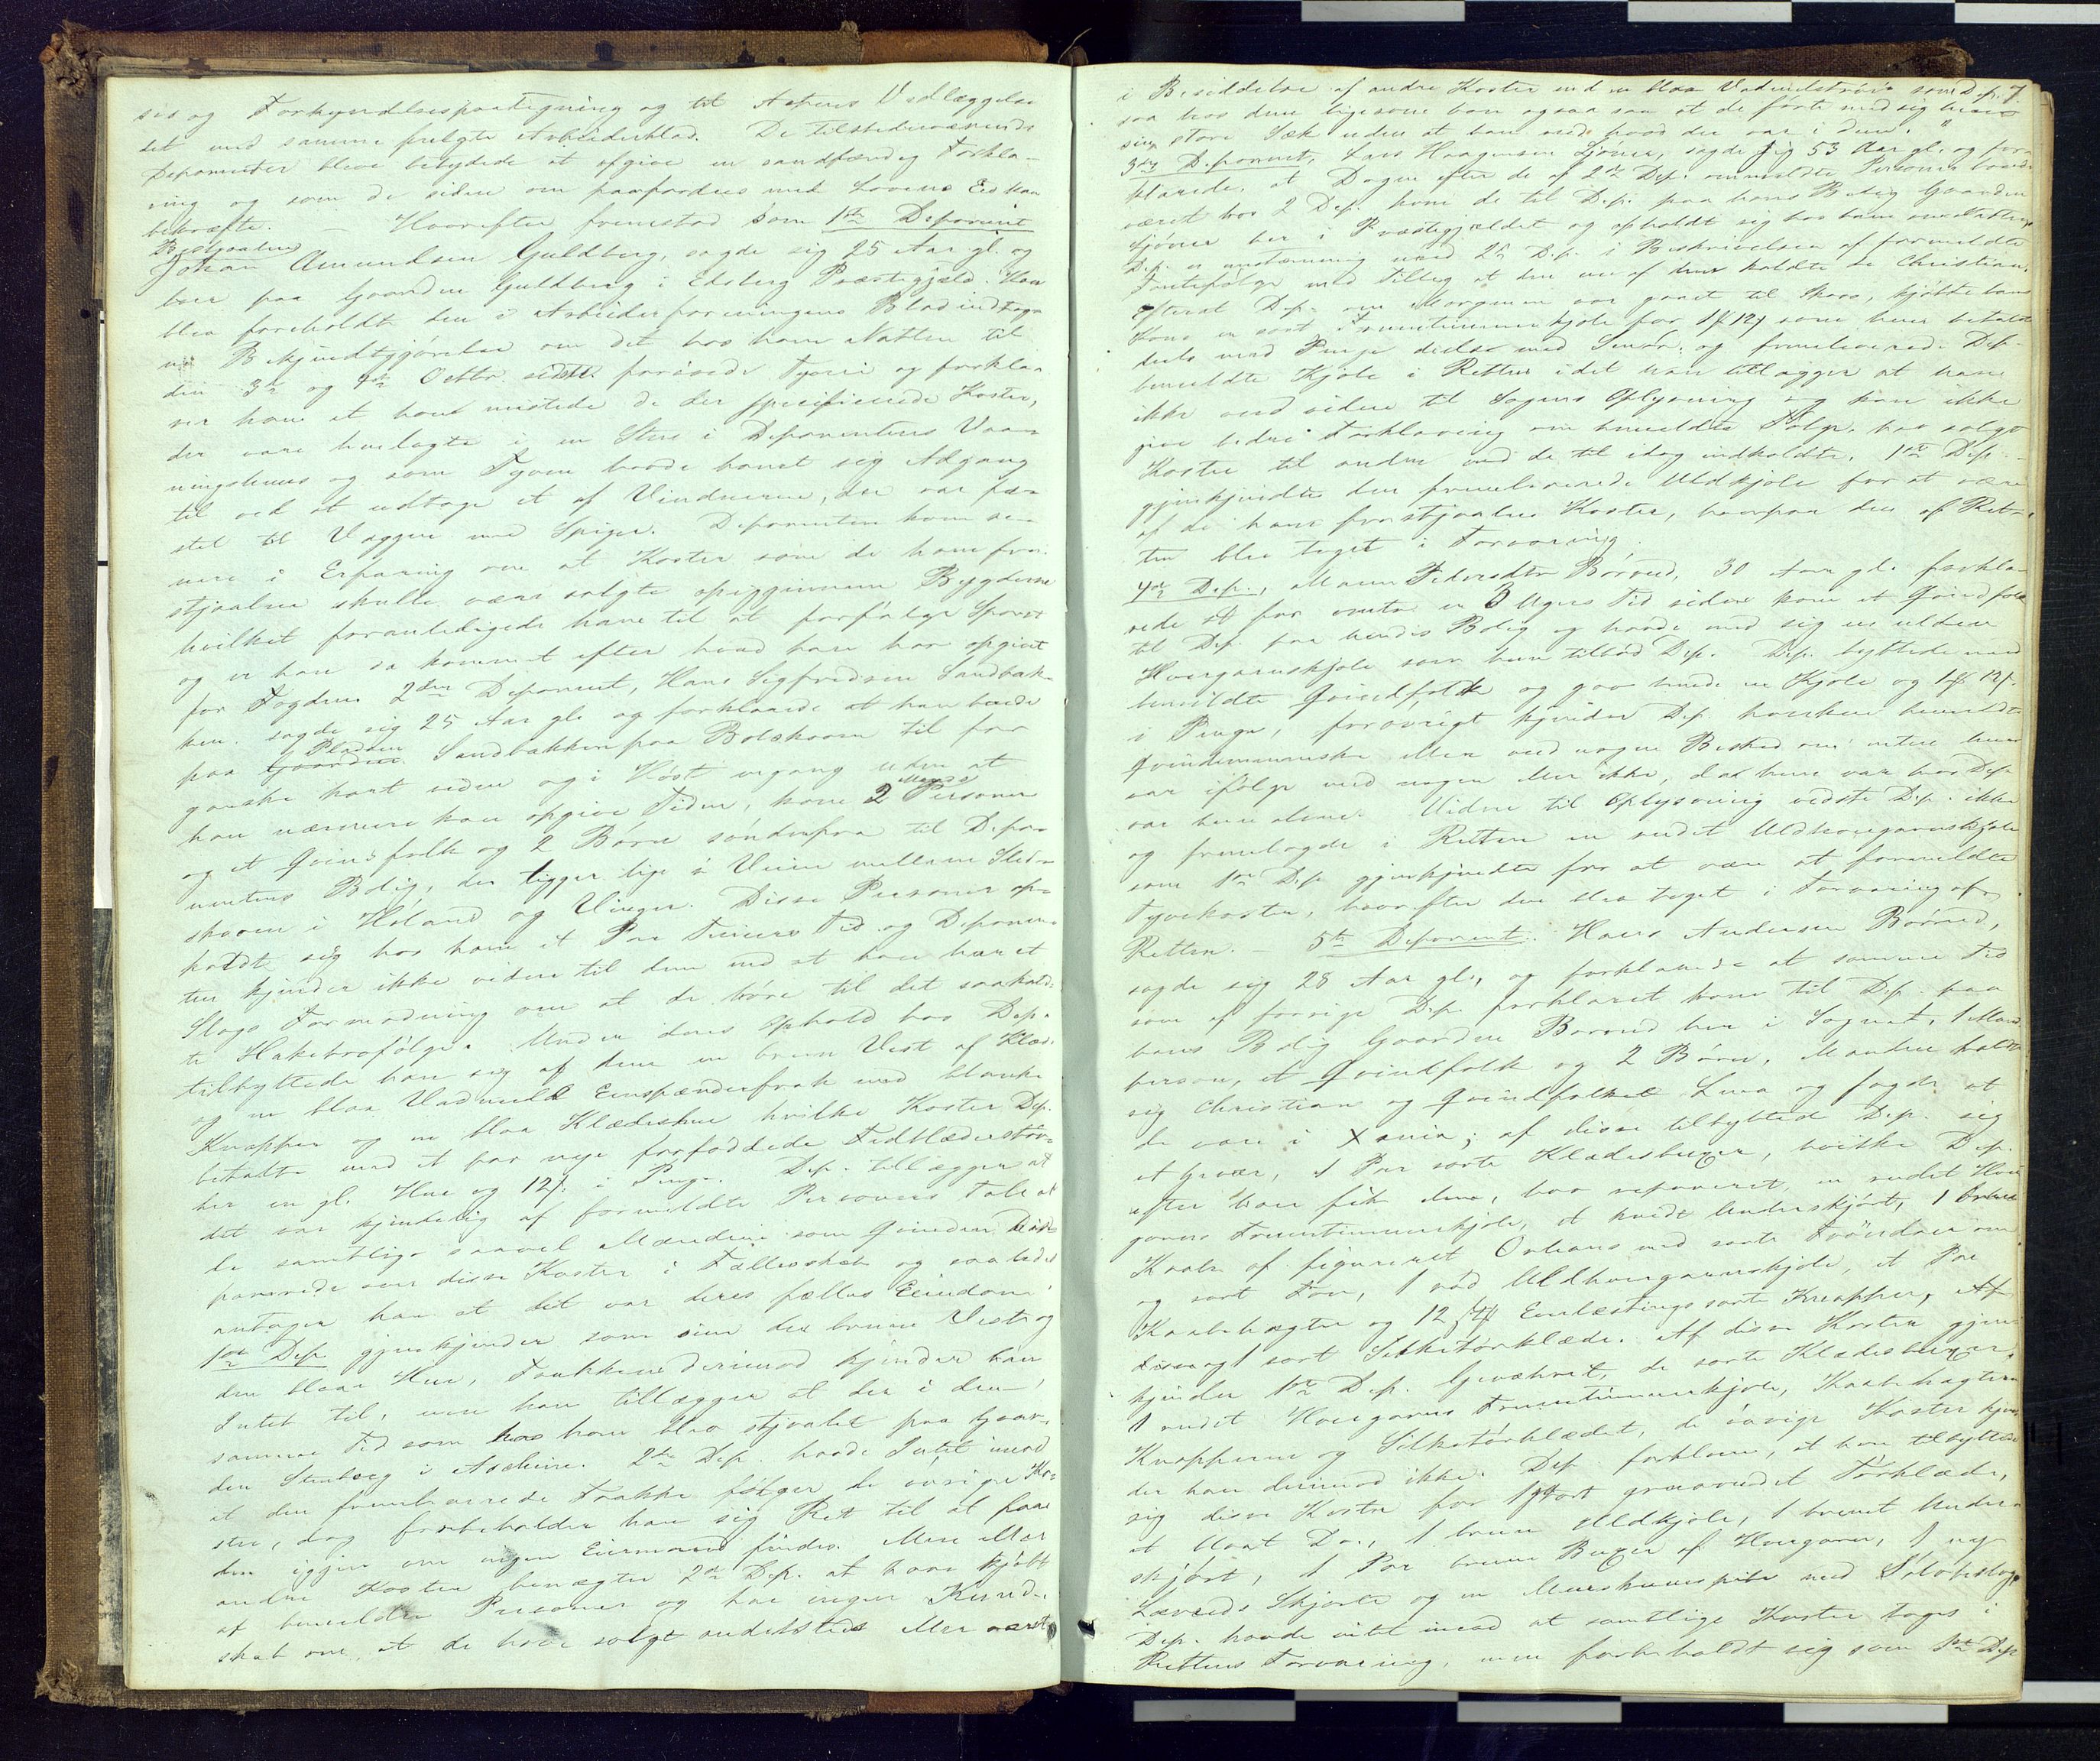 sis og Forkyndelsespaategning og til Actens Vedlæggelse
det med samme fulgte Arbeiderblad. De tilstedeværende
Deponenter bleve betydede at afgive en sandfærdig Forkla-
ring og som de siden om paafordres med Lovens Ed kan
bekræfte. — Hvorefter fremstod som 1ste Deponent
Johan Amundsen Guldberg, sagde sig 25 Aar gl. og
boer paa Gaarden Guldberg i Edsberg Præstegjeld. Han
blev foreholdt den i Arbeiderforeningens Blad indtag-
ne Bekjendtgjørelse om det hos ham Natten til
den 3de og 4de Octbr. sidstl. forøvede Tyveri og forkla-
rer han at han mistede de der specificerede Koster,
der vare henlagte i en Stue i Deponentens Vaa-
ningshuus og som Tyven havde banet sig Adgang
til ved at udtage et af Vinduerne, der var fæ-
stet til Væggen med Spiger. Deponenten kom se-
nere i Erfaring om at Koster som de ham fra-
stjaalne skulle være solgte igjennem Bygderne
hvilket foranledigede ham til at forfølge Sporet
og er han da kommet efter hvad han har opgivet
for Fogden. 2den Deponent, Hans Sigfredsen Sandbak-
ken. sagde sig 25 Aar gl. og forklarede at han boede
paa Pladsen Sandbakken paa Bolskoven til for
ganske kort siden og i Høst engang uden at
han nærmere kan opgive Tiden, kom 2 Mands Personer
og et Qvindfolk og 2 Børn søndenfra til Depo-
nentens Bolig, der ligger lige i Veien mellem Sted-
skoven i Høland og Vinger. Disse Personer op-
holdt sig hos ham et Par Timers Tid og Deponen-
ten kjender ikke videre til dem end at han har et
Slags Formodning om at de høre til det saakald-
te Haketrofølge. Under deres Ophold hos Dep.
tilbyttede han sig af dem en brun Vest af Klæde
og en blaa Vadmels Eenspænderfrak med blanke
Knapper og en blaa Klædeshue hvilke Koster Dep.
betalte med et par nye forfoddede Fedtlæderstøv-
ler en gl. Hue og 12 s. i Penge. Dep. tillægger at
det var kjendelig af formeldte Personers Tale at
de samtlige saavel Mændene som Qvinden dis-
ponerede over disse Koster i Fællesskab og saaledes
antager han at det var deres fælles Eiendom.
1ste Dep. gjenkjender som sin den brune Vest og
den blaae Hue, Frakken derimod kjender han
Intet til, men han tillægger at der i den
samme Tid som hos ham blev stjaalet paa Gaar-
den Stenberg i Askim. 2den Dep. havde Intet imod
at den fremkomne Frakke følger de øvrige Ko-
ster, dog forbeholder han sig Ret til at faae
den igjen om ingen Eiermand findes. Mere eller
andre Koster benægter 2den Dep. at have kjøbt
af bemeldte Personer og har ingen Kund-
skab om at de have solgt andetsteds eller været
i Besiddelse af andre Koster end en blaa Vadmelstrøie som Dep. 7.
saa hos dem ligesom han ogsaa saa at de førte med sig hver
sin store Sæk uden at han veed hvad der var i dem.
3die Deponent, Lars Haagensen Tjøner, sagde sig 53 Aar gl. og for-
klarede, at Dagen efter de af 2den Dep. ommeldte Personer havde
været hos 2 Dep. kom de til Dep. paa hans Bolig Gaarden
Sjøner her i Præstegjeldet og opholdt sig hos ham om Natten.
Dep. er enstemmig med 2den Dep. i Beskrivelsen af formeldte
Fantefølge med Tillæg at den ene af dem kaldte sig Christian.
Efterat Dep. om Morgenen var gaaet til Skovs, kjøbte hans
Kone en sort Fruentimmerkjole for 1 ß 12 s som hun betalte
deels med Penge deels med Smør, og fremleverede Dep.
bemeldte Kjole i Retten idet han tillægger at han
ikke veed videre til Sagens Oplysning og kan ikke
give bedre Forklaring om bemeldte Følge har solgt
Koster til andre end de til idag indkaldte. 1ste Dep.
gjenkjendte den fremleverede Uldkjole for at være
af de ham frastjaalne Koster, hvorpaa den af Ret-
ten blev taget i Forvaring.
4de Dep., Maren Pedersdtr Børud, 30 Aar gl. forkla-
rede at for omtr en 3 Ugers Tid siden kom et Qvindfolk
til Dep. paa hendes Bolig og havde med sig en ulden
Hvergarnskjole som hun tilbød Dep. Dep. byttede med
bemeldte Qvindfolk og gav hende en Kjole og 1 ß 12 s.
i Penge, forøvrigt kjender Dep. hverken bemeldte
Qvindemenneske eller veed nogen Besked om enten hun
var ifølge med nogen eller ikke, da hun var hos Dep.
var hun alene. Videre til Oplysning vidste Dep. ikke
og fremlagde i Retten en rudet Uldhvergarnskjole
som 1ste Dep. gjenkjendte for at være af formeldte
Tyvekoster, hvorefter den blev taget i Forvaring af
Retten. — 5te Deponent. Hans Andersen Børud,
sagde sig 28 Aar gl., og forklarede at samme Tid
som af forrige Dep. forklaret kom til Dep. paa
hans Bolig Gaarden Børud her i Sognet, 1 Mand-
person, et Qvindfolk og 2 Børn. Manden kaldte
sig Christian og Qvindfolket Lena og sagde at
de vare i Xania; af disse tilbyttede Dep. sig
et Gevær, 1 Par sorte Klædesbuxer, hvilke Dep.
efter han fik dem, har repareret, en rudet Hver-
garns Fruentimmerkjole, et hvidt Underskjørt, 1 Orleans
Kaabe af figureret Orleans med sorte Frøndser om
og sort Foer, 1 rød Uldhvergarnskjole, et Par
Kaabehægter og 12 Eenlæstings sorte Knapper, Af
1 sort Silketørklæde. Af disse Koster gjen-
kjender 1ste Dep. Geværet, de sorte Klædesbuxer,
1 rudet Hvergarns Fruentimmerkjole, Kaabehægterne
Knapperne og Silketørklædet, de øvrige Koster kjen-
der han derimod ikke. Dep. forklarer, at han tilbyttede
sig disse Koster for 1 stort graarudet Tørklæde,
et blaat Do., 1 brun Uldkjole, 1 brunet Under-
skjørt, 1 Par brune Buxer af Hvergarn, 1 ny
Lærreds Skjorte og en Meerskumspibe med Sølvbeslag.
Dep. havde intet imod at samtlige Koster toges i
Rettens Forvaring, men forbeholdt sig som 1ste Dep.